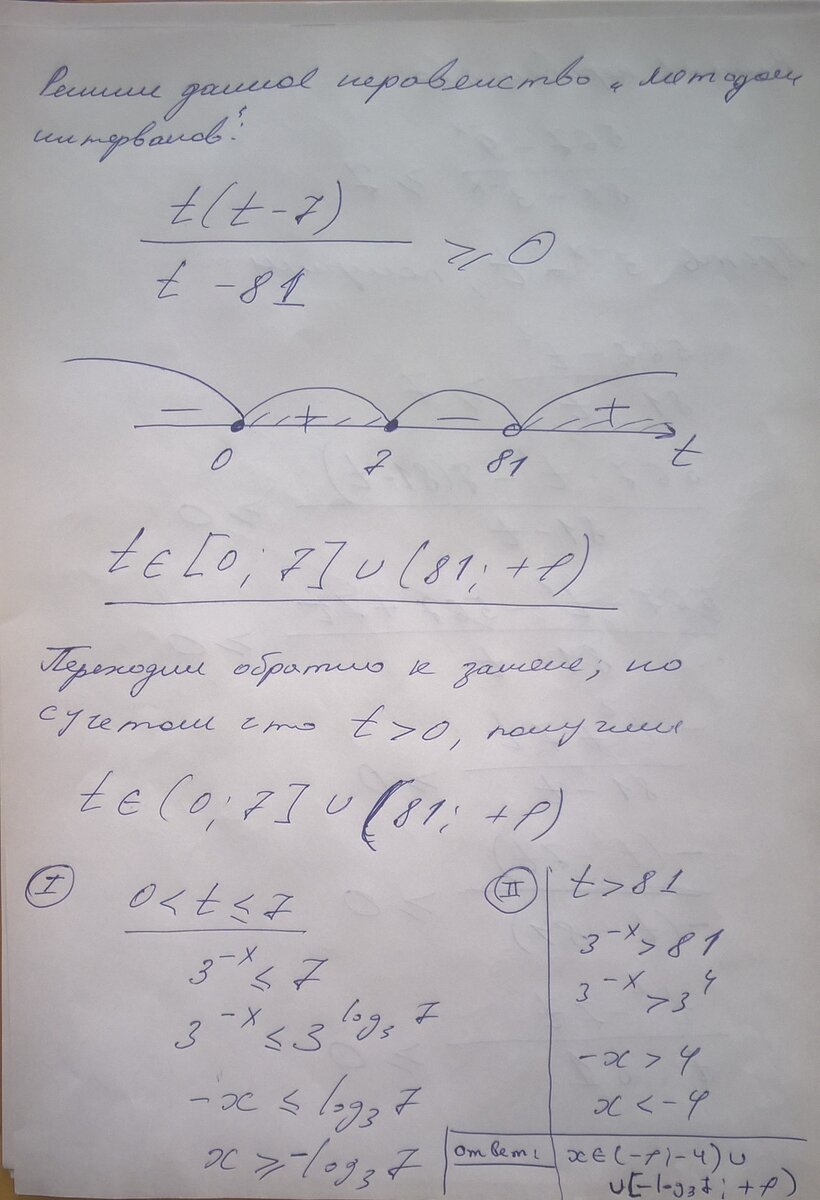 Решим данное неравенство "методом
интервалов":
t(t-7)
t - 81
≥ 0
− + − +
0 7 81 t
t ∈ [0; 7] ∪ (81; +∞)
Переходим обратно к замене, но
с учетом что t > 0, получим
t ∈ (0; 7] ∪ (81; +∞)
I
0 < t ≤ 7
3^{-x} ≤ 7
3^{-x} ≤ 3^{log_3 7}
-x ≤ log_3 7
x ≥ -log_3 7
II
t > 81
3^{-x} > 81
3^{-x} > 3^4
-x > 4
x < -4
ответ: x ∈ (-∞; -4) ∪
∪ [-log_3 7; +∞)